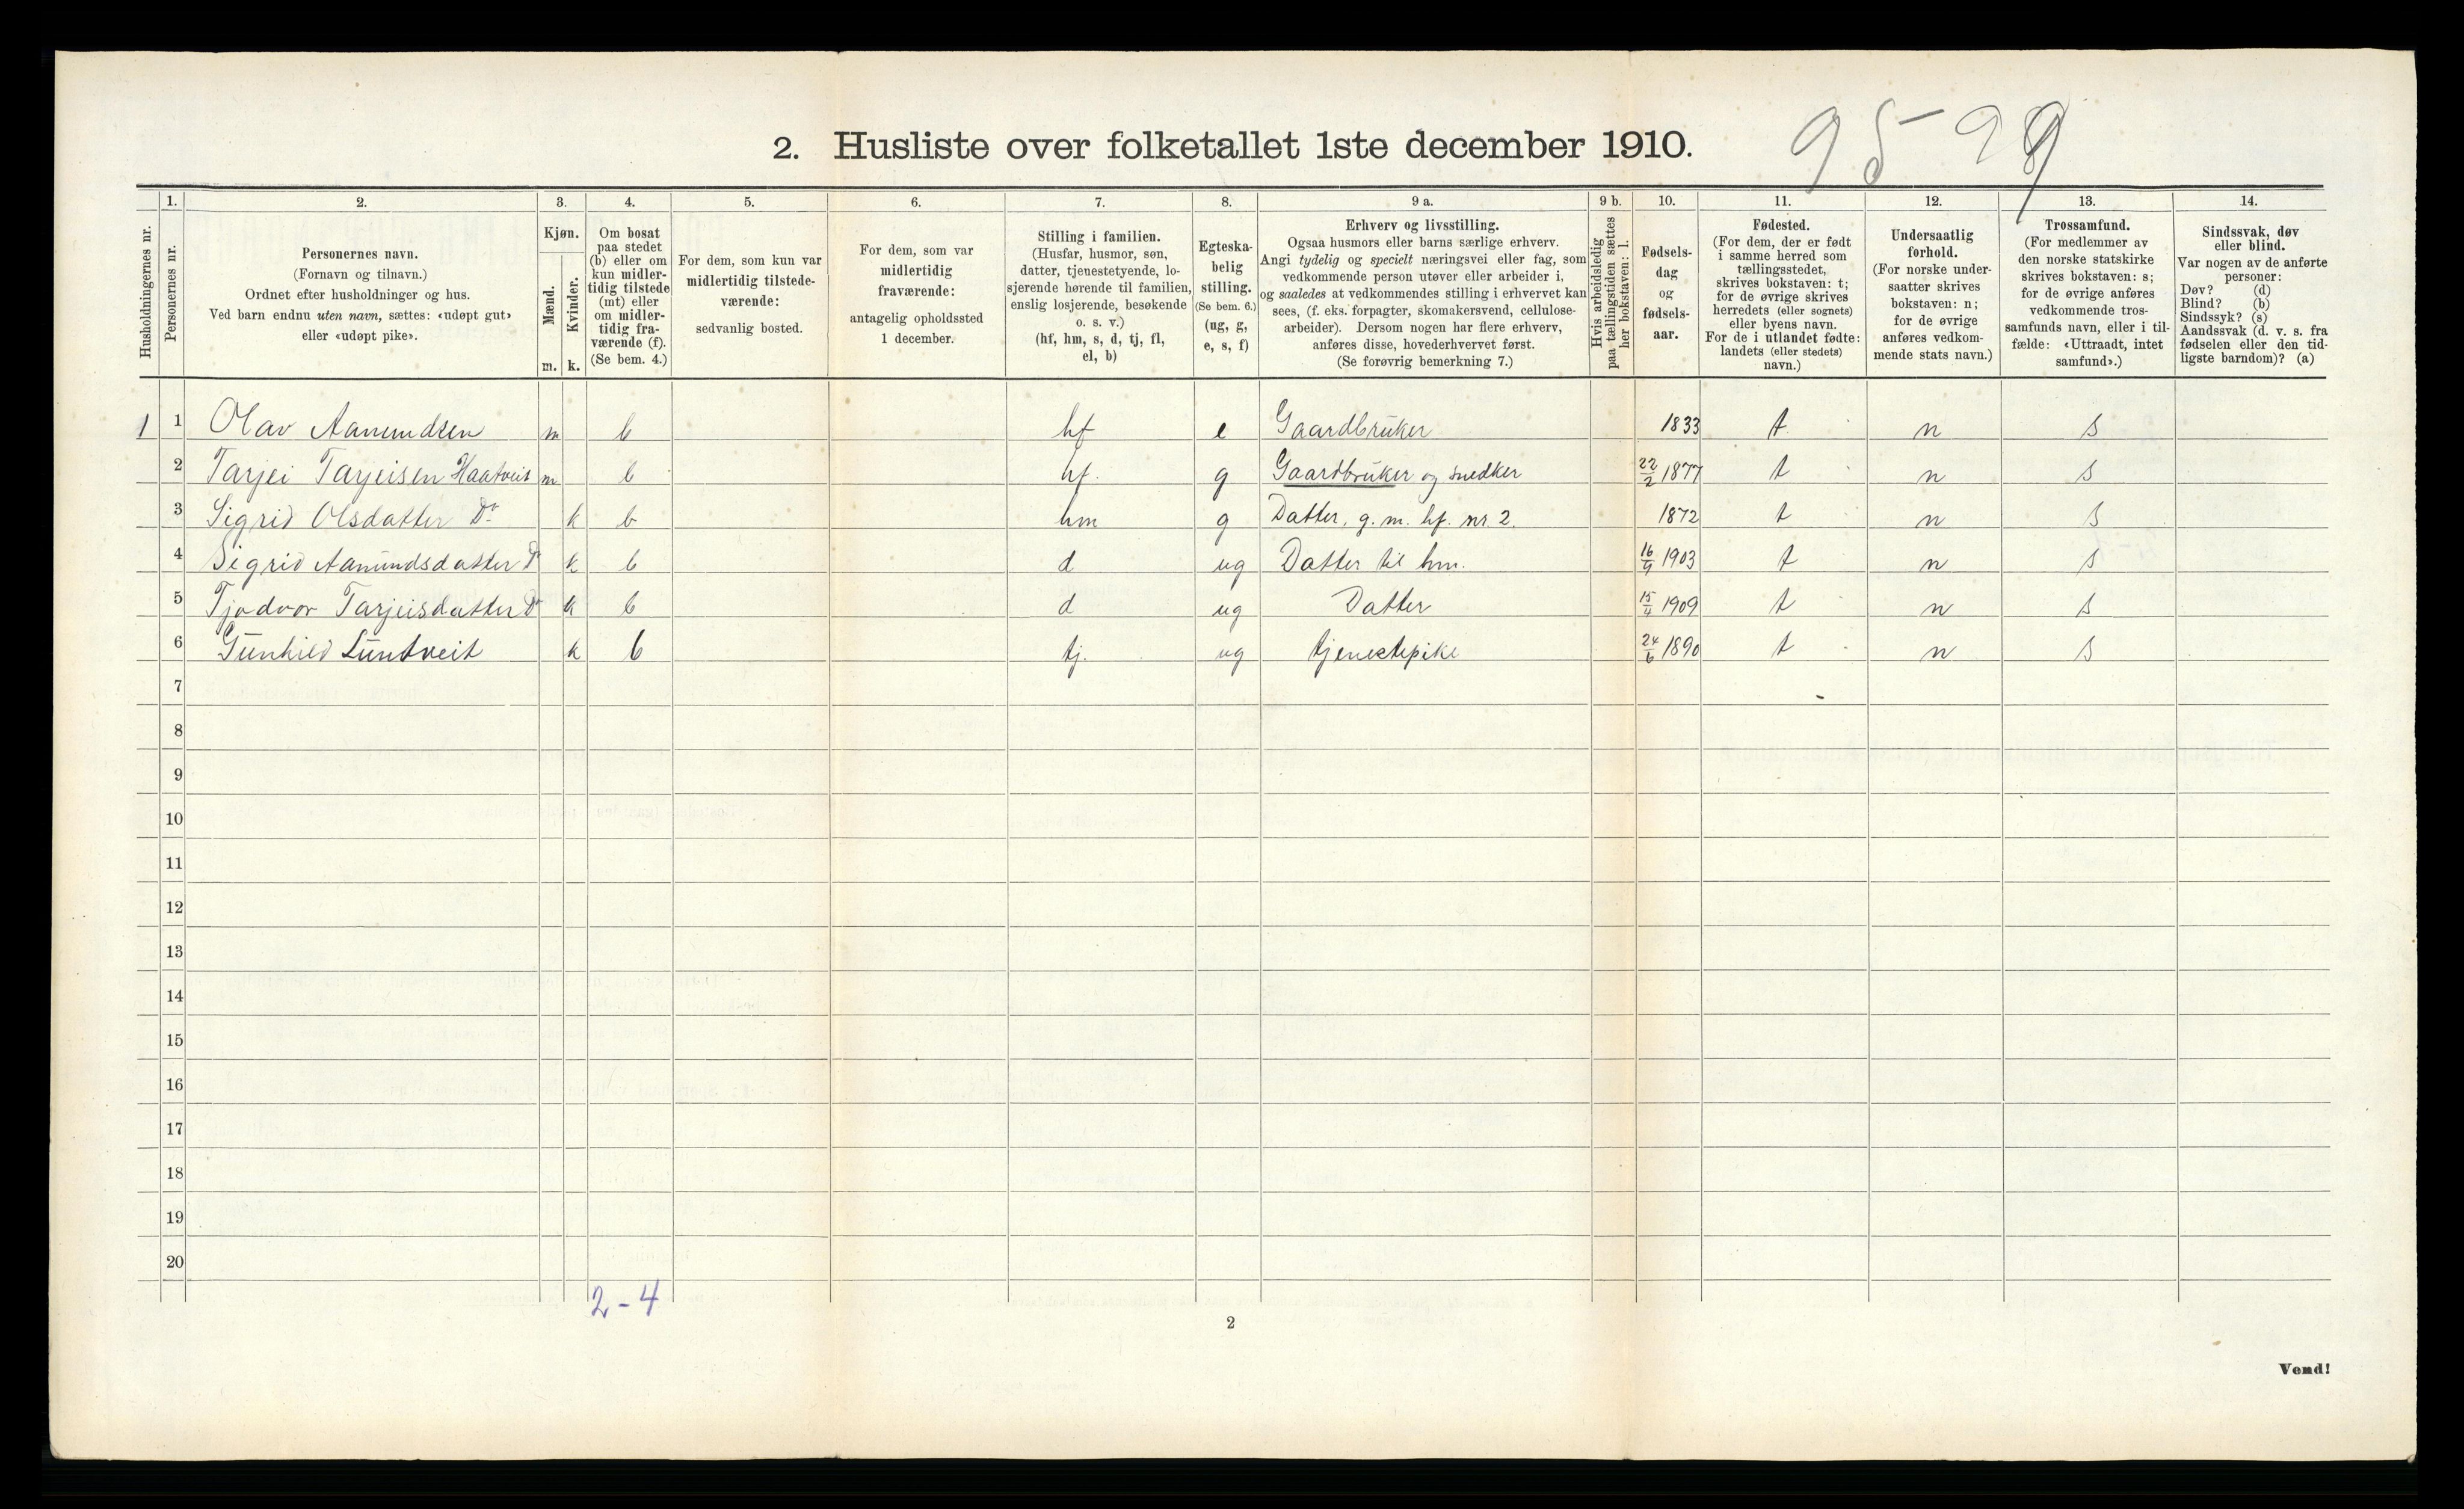 95-99
2. Husliste over folketallet 1ste december 1910.
Husholdningernes nr.
1.
Personernes nr.
2.
Personernes navn.
(Fornavn og tilnavn.)
Ordnet efter husholdninger og hus.
Ved barn endnu uten navn, sættes: «udøpt gut»
eller «udøpt pike».
3.
Kjøn.
Mænd.
Kvinder.
m. k.
4.
Om bosat
paa stedet
(b) eller om
kun midler-
tidig tilstede
(mt) eller
om midler-
tidig fra-
værende (f).
(Se bem. 4.)
5.
For dem, som kun var
midlertidig tilstede-
værende:
sedvanlig bosted.
6.
For dem, som var
midlertidig
fraværende:
antagelig opholdssted
1 december.
7.
Stilling i familien.
(Husfar, husmor, søn,
datter, tjenestetyende, lo-
sjerende hørende til familien,
enslig losjerende, besøkende
o. s. v.)
(hf, hm, s, d, tj, fl,
el, b)
8.
Egteska-
belig
stilling.
(Se bem. 6.)
(ug, g,
e, s, f)
9 a.
Erhverv og livsstilling.
Ogsaa husmors eller barns særlige erhverv.
Angi tydelig og specielt næringsvei eller fag, som
vedkommende person utøver eller arbeider i,
og saaledes at vedkommendes stilling i erhvervet kan
sees, (f. eks. forpagter, skomakersvend, cellulose-
arbeider). Dersom nogen har flere erhverv,
anføres disse, hovederhvervet først.
(Se forøvrig bemerkning 7.)
9 b.
Hvis arbeidsledig
paa tællingstiden sættes
her bokstaven: l.
10.
Fødsels-
dag
og
fødsels-
aar.
11.
Fødested.
(For dem, der er født
i samme herred som
tællingsstedet,
skrives bokstaven: t;
for de øvrige skrives
herredets (eller sognets)
eller byens navn.
For de i utlandet fødte:
landets (eller stedets)
navn.)
12.
Undersaatlig
forhold.
(For norske under-
saatter skrives
bokstaven: n;
for de øvrige
anføres vedkom-
mende stats navn.)
13.
Trossamfund.
(For medlemmer av
den norske statskirke
skrives bokstaven: s;
for de øvrige anføres
vedkommende tros-
samfunds navn, eller i til-
fælde: «Uttraadt, intet
samfund».)
14.
Sindssvak, døv
eller blind.
Var nogen av de anførte
personer:
Døv? (d)
Blind? (b)
Sindssyk? (s)
Aandssvak (d. v. s. fra
fødselen eller den tid-
ligste barndom)? (a)
1 1 Olav Aamundsen m b hf e Gaardbruker 1833 t n s
2 Tarjei Tarjeisen Haatveit m b hf. g Gaardbruker og snedker 22/2 1877 t n s
3 Sigrid Olsdatter Do k b hm g Datter, g. m. hf. nr 2. 1872 t n s
4 Sigrid Aamundsdatter Do k b d ug Datter til hm. 16/9 1903 t n s
5 Tjodvor Tarjeisdatter Do k b d ug Datter 15/4 1909 t n s
6 Gunhild Lundtveit k b tj. ug tjenestepike 24/6 1890 t n s
7
8
9
10
11
12
13
14
15
16
17
18
19
20
2-4
2
Vend!